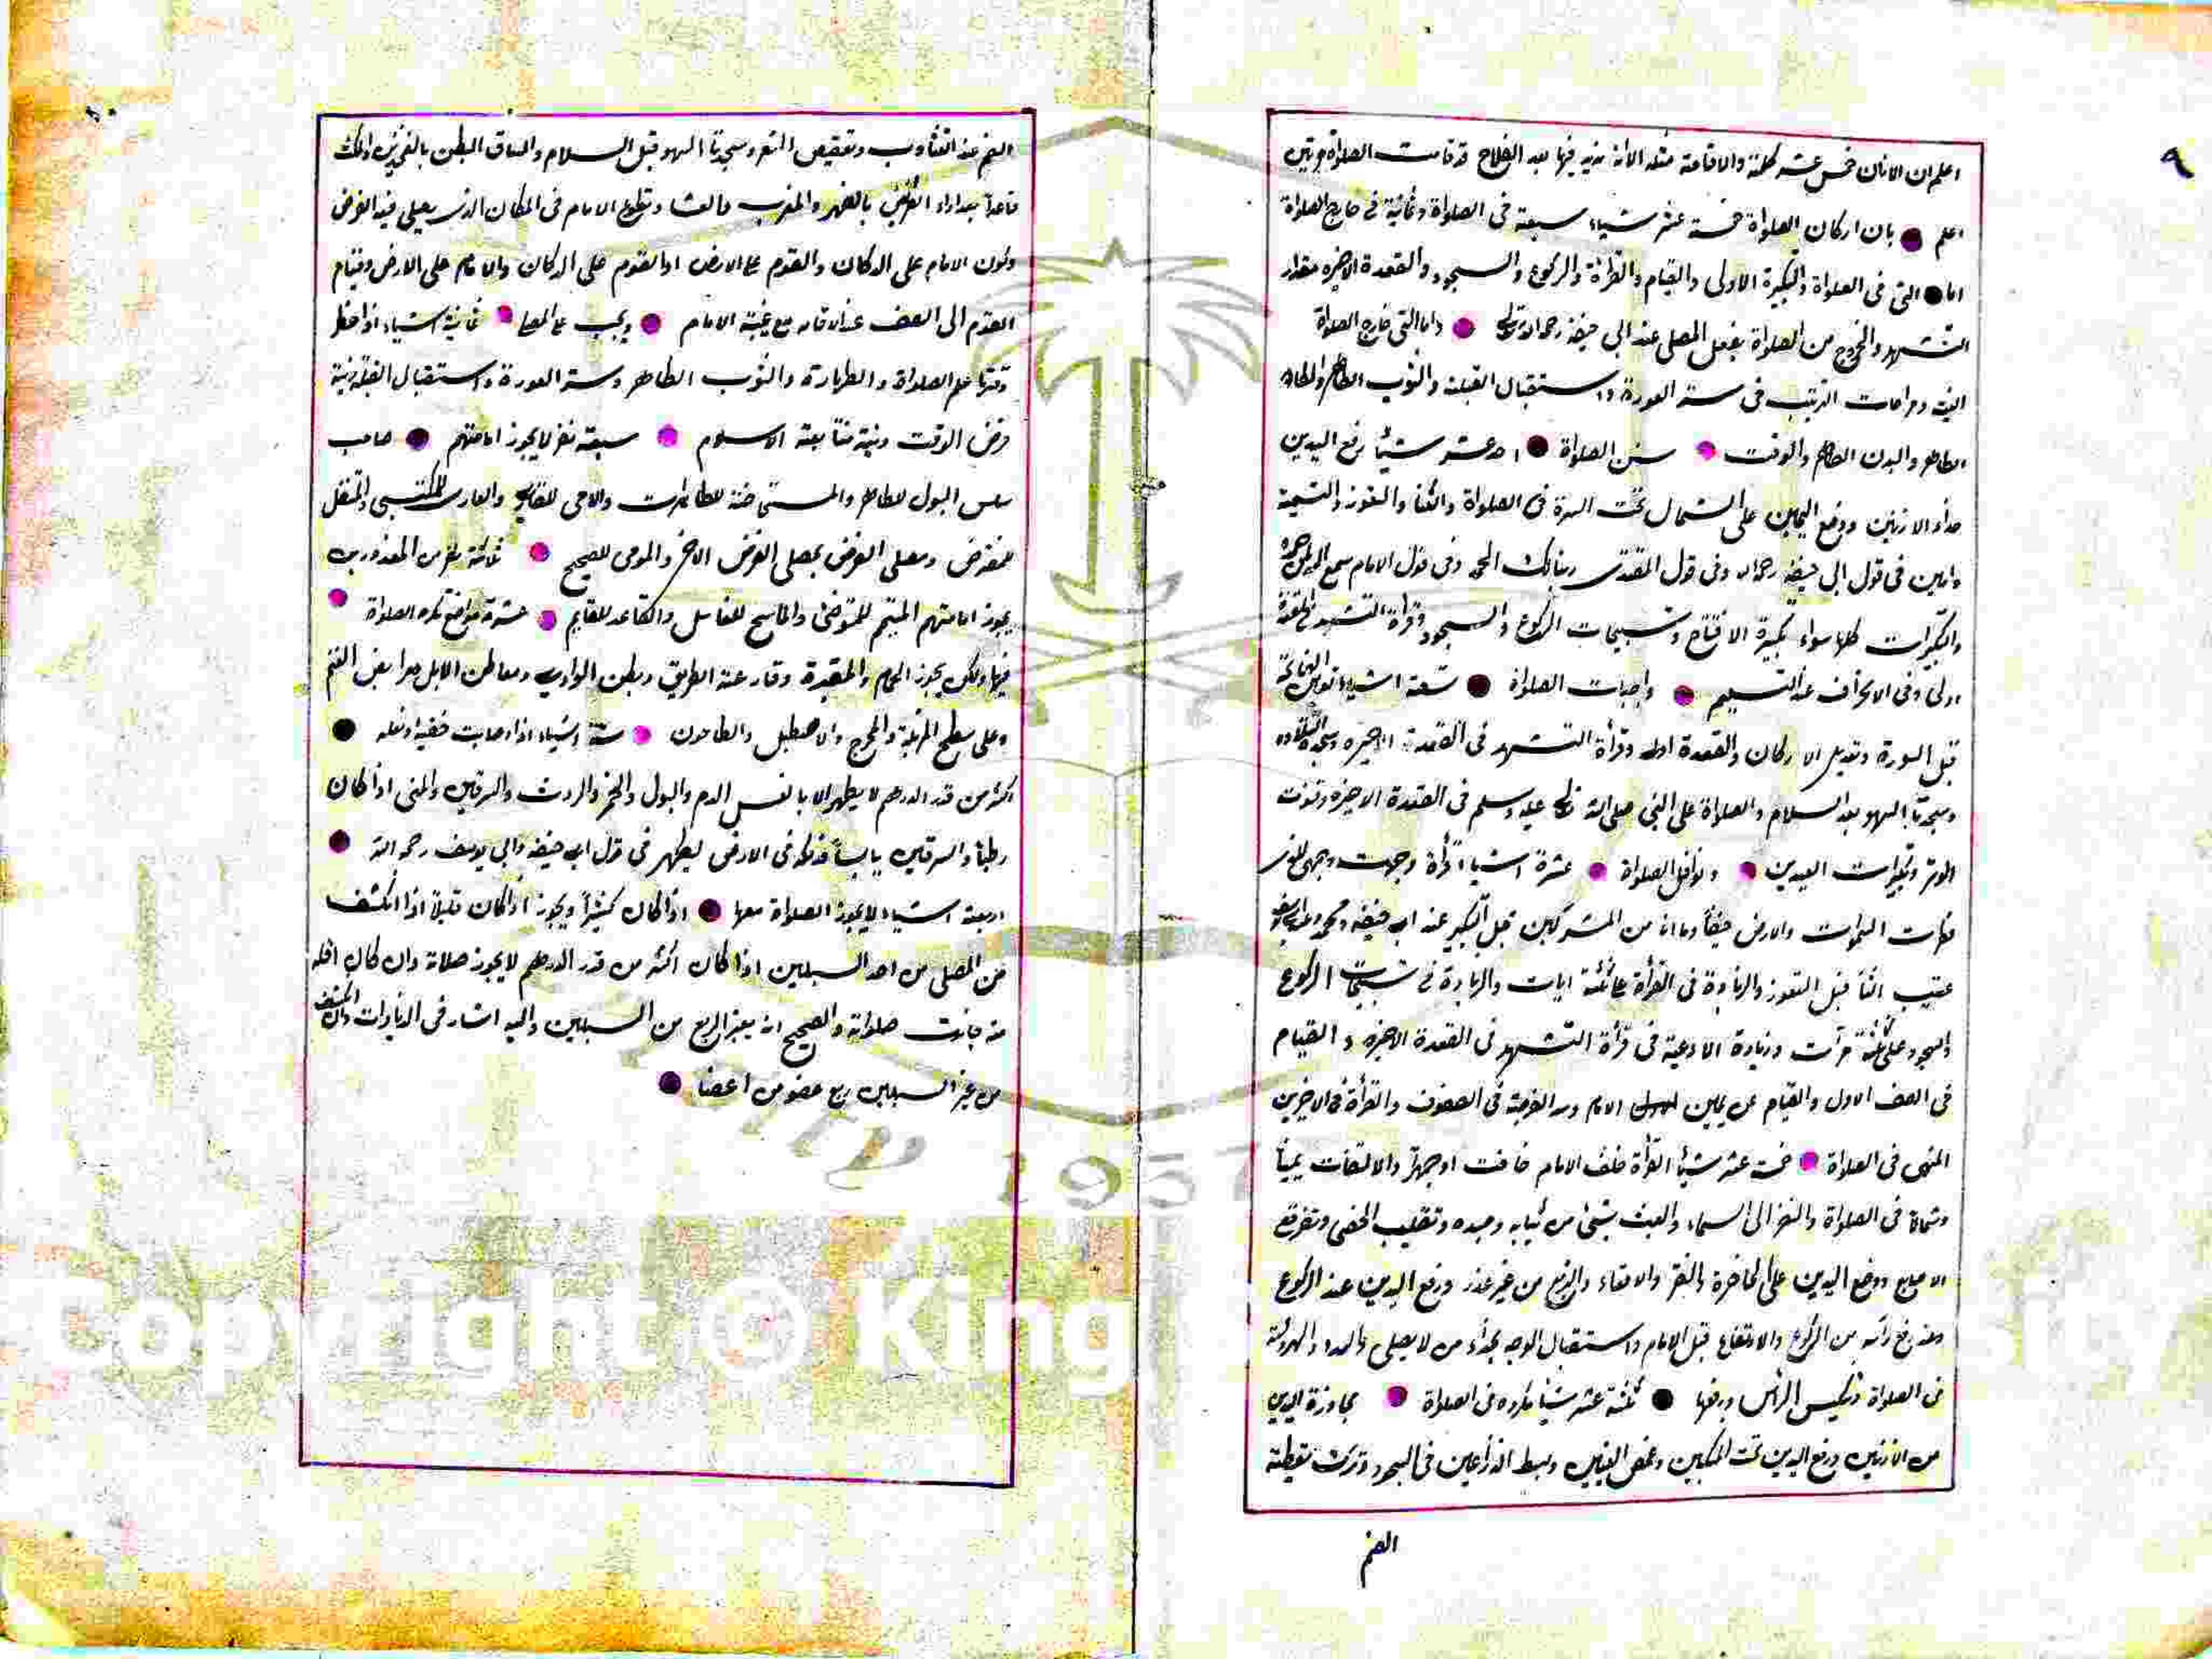 ٩
اعلم ان الاذان خمس عشر كلمة والاقامة مثله الا انه يزيد فيها بعد الفلاح قد قامت الصلواة مرتين
اعلم بان اركان الصلواة خمسة عشر شياء سبعة فى الصلواة وثمانية فى خارج الصلواة
اما التى فى الصلواة والتكبيرة الاولى والقيام والقرأة والركوع والسجود والقعدة الاخيره مقدار
التشهد والخروج من الصلواة بفعل المصلى عند ابى حنيفة رحمه الله تعالى واما التى خارج الصلواة
النية ومراعات الترتيب فى ستر العورة واستقبال القبلة والثوب الطاهر والمكان
الطاهر والبدن الطاهر والوقت سنن الصلواة احد عشر شيأ رفع اليدين
حذاء الاذنين ووضع اليمين على الشمال تحت السرة فى الصلواة والثنا والتعوذ والتسمية
وامين فى قول ابى حنيفه رحمه الله وفى قول المقتدى ربنا لك الحمد وفى قول الامام سمع الله لمن حمده
والتكبيرات كلها سواء تكبيرة الافتتاح وتسبيحات الركوع والسجود وقرأة التشهد فى القعدة
اولى وفى الانحراف عند التسليم واجبات الصلواة تسعة اشياء تعيين الفاتحة
قبل السورة وتعديل الاركان والقعدة اولى وقرأة التشهد فى القعدة الاخيره وسجدة التلاوه
وسجدتا السهو بعد السلام والصلواة على النبى صلى الله تعالى عليه وسلم فى القعدة الاخيره وقنوت
الوتر وتكبيرات العيدين ونوافل الصلواة عشرة اشيا قرأة وجهت وجهى للذى
فطر السموات والارض حنيفا وما انا من المشركين قبل التكبير عند ابى حنيفه ومحمد
عقيب الثنأ قبل التعوذ والزيادة فى القرأة على ثلثة ايات والزيادة فى تسبيحات الركوع
والسجود على ثلثة مرآت وزيادة الادعية فى قرأة التشهد فى القعدة الاخيره والقيام
فى الصف الاول والقيام عن يمين الامام وسد الفرجة فى الصفوف والقرأة فى الاخيرين
المنهى فى الصلواة خمسة عشر شيأ القرأة خلف الامام خافت او جهر والالتفات يمينا
وشمالا فى الصلواة والنظر الى السماء والعبث بشئ من ثيابه وجسده وتقليب الحصى وتفرقع
الاصابع ووضع اليدين على الخاصرة والنقر والاقعاء والتربع من غير عذر ورفع اليدين عند الركوع
وعند رفع رأسه من الركوع والارتفاع قبل الامام واستقبال الوجه بحذاء من لا يصلى والهرولة
فى الصلواة وتنكيس الرأس ورفعها ثلثة عشر شيأ مكروه فى الصلواة مجاوزة اليدين
من الاذنين ورفع اليدين تحت المنكبين وغمض العينين وبسط الذراعين فى السجود وترك تغطية
الفم
١٠
الفم عند التثأوب وتعقيص الشعر وسجدتا السهو قبل السلام والصاق البطن بالفخذين
قاعداً بعد اداء الفرض بالظهر والمغرب والعشا وتطوع الامام فى المكان الذى يصلى فيه الفرض
وكون الامام على الدكان والقوم على الارض او القوم على الدكان والامام على الارض وقيام
القوم الى الصف عند الاقامه مع غيبة الامام ويجب على المصلى ثمانية اشياء اذا دخل
وقتها علم الصلواة والطهارة والثوب الطاهر وستر العورة واستقبال القبلة ونية
فرض الوقت ونية متابعة الامام سبعة نفر لا يجوز امامتهم صاحب
سلس البول للطاهر والمستحاضة للطاهرات والامى للقارى والعارى للمكتسى والمتنفل
للمفترض ومصلى الفرض بمصلى الفرض الاخر والمومى للصحيح ثلاثة نفر من المعذورين
يجوز امامتهم المتيمم للمتوضئ والماسح للغاسل والقاعد للقايم عشرة مواضع تكره الصلواة
فيها ولكن يجوز الحمام والمقبرة وقارعة الطريق وبطن الوادى ومعاطن الابل ومرابض الغنم
وعلى سطح المزبلة والمخرج والاصطبل والطاحون ستة اشياء اذا اصابت خفيه او نعله
اكثر من قدر الدرهم لا يطهر الا بالغسل الدم والبول والخمر والروث والسرقين والمنى اذا كان
رطباً والسرقين يابسا فدلكه فى الارض ليطهر فى قول ابى حنيفه وابى يوسف رحمه الله
اربعة اشياء لا يجوز الصلواة معها اذا كان كثيراً ويجوز اذا كان قليلاً اذا انكشف
من المصلى من احد السبيلين اذا كان اكثر من قدر الدرهم لا يجوز صلاته وان كان اقل
منه جازت صلواته والصحيح انه يعتبر الربع من السبيلين واليه اشار فى الزيادات وان انكشف
من غير السبيلين ربع عضو من اعضا